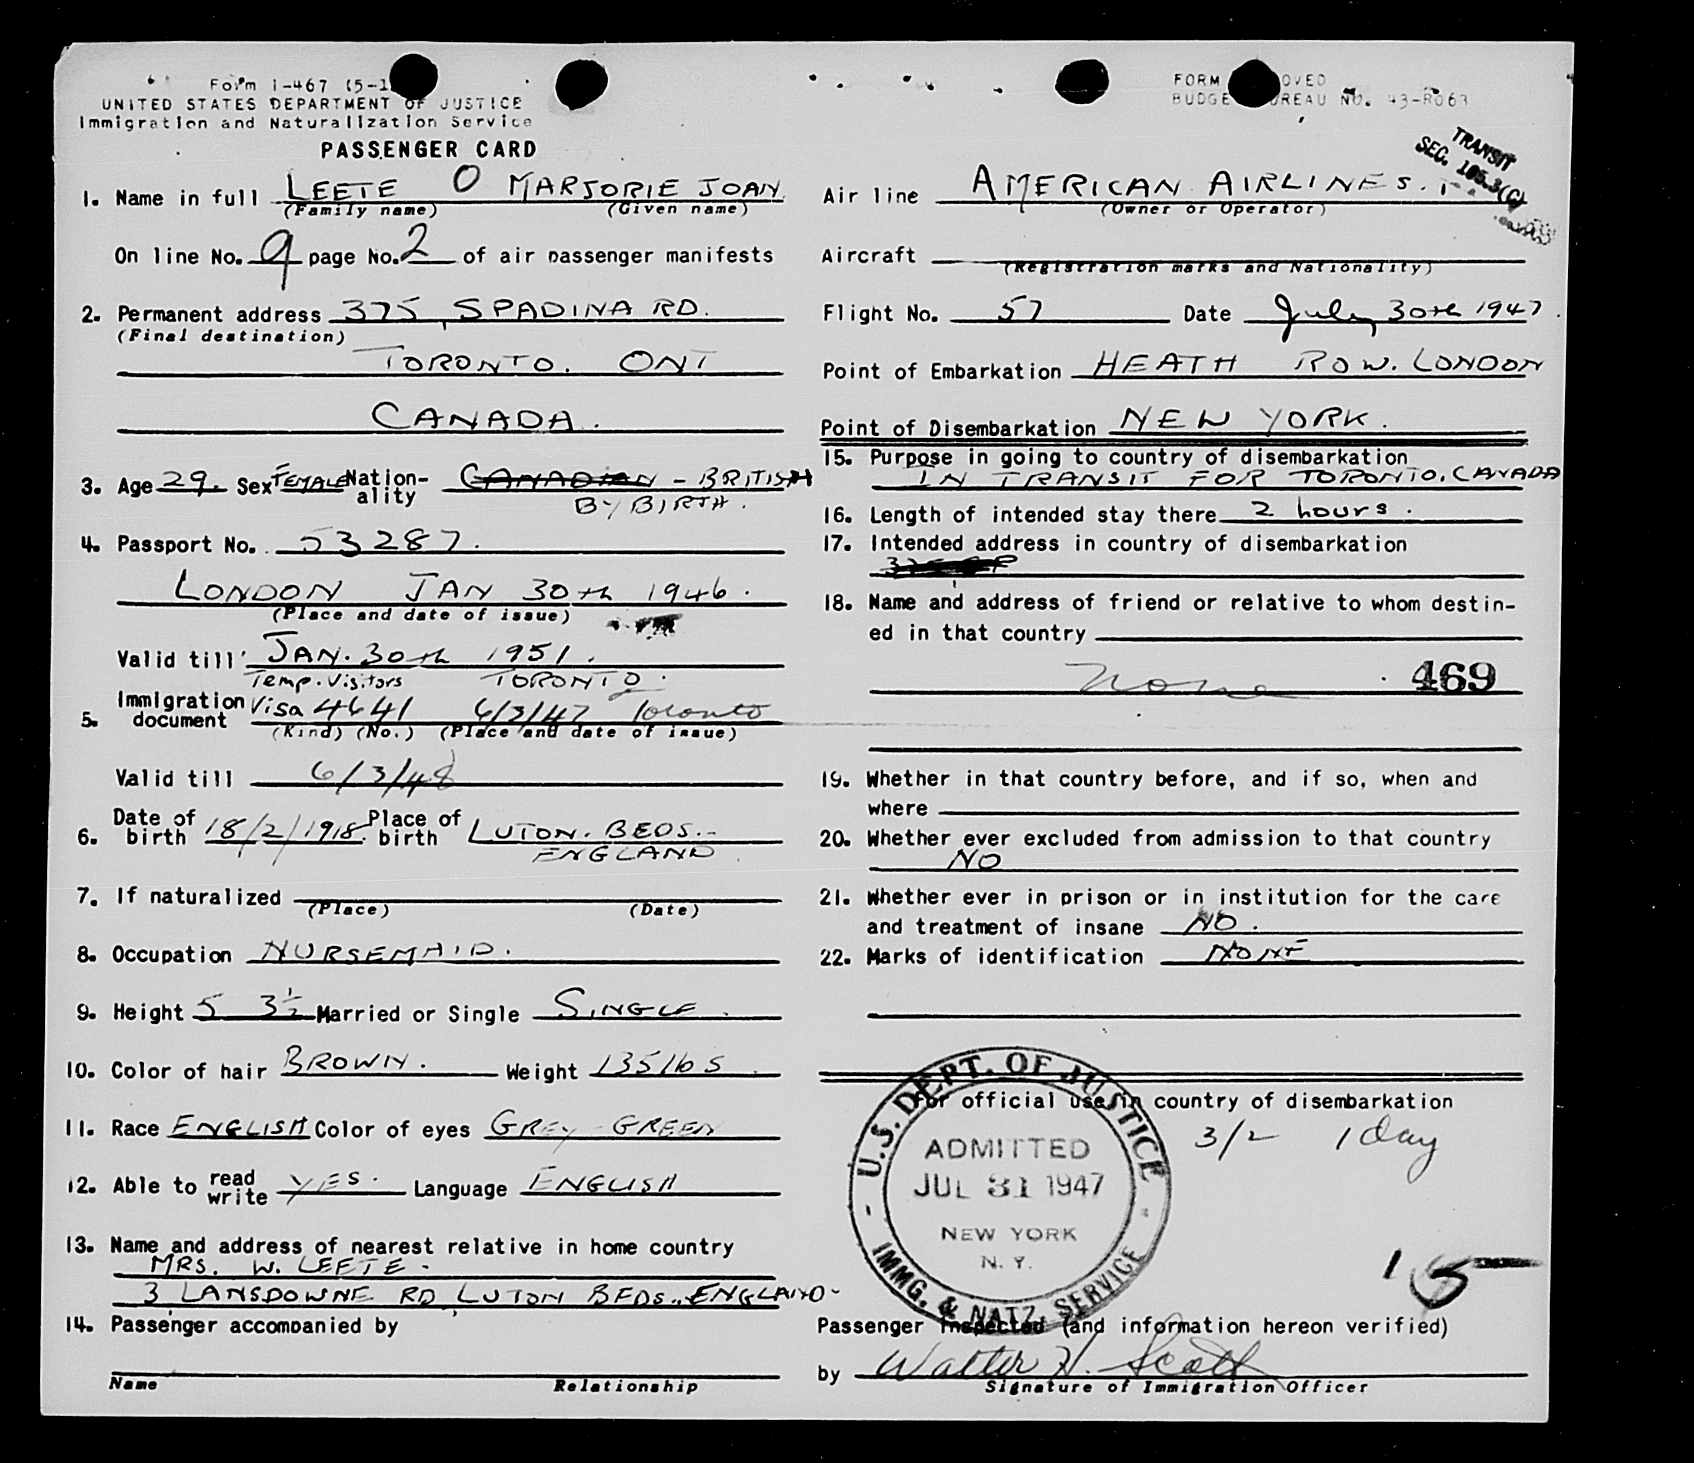 Form I-467 (5-1
UNITED STATES DEPARTMENT OF JUSTICE
Immigration and Naturalization Service
PASSENGER CARD
1. Name in full LEETE O MARJORIE JOAN
(Family name) (Given name)
On line No. 9 page No. 2 of air passenger manifests
2. Permanent address 375, SPADINA RD.
(Final destination)
TORONTO. ONT
CANADA.
3. Age 29. Sex FEMALE Nationality CANADIAN - BRITISH
BY BIRTH.
4. Passport No. 53287.
LONDON JAN 30th 1946.
(Place and date of issue)
Valid till JAN. 30th 1951.
Temp. Visitors TORONTO.
5. Immigration document Visa 4641 6/3/47 Toronto
(Kind) (No.) (Place and date of issue)
Valid till 6/3/48
6. Date of birth 18/2/1918 Place of birth LUTON. BEDS.-
ENGLAND
7. If naturalized
(Place) (Date)
8. Occupation NURSEMAID.
9. Height 5 3½ Married or Single SINGLE.
10. Color of hair BROWN. Weight 135 lbs.
11. Race ENGLISH Color of eyes GREY-GREEN
12. Able to read write YES. Language ENGLISH
13. Name and address of nearest relative in home country
MRS. W. LEETE.
3, LANSDOWNE RD, LUTON BEDS., ENGLAND-
14. Passenger accompanied by
Name Relationship
FORM OVED
BUDGE REAU NO. 43-R063
TRANSIT
SEC. 105.3(C)
Air line AMERICAN AIRLINES.
(Owner or Operator)
Aircraft
(Registration marks and Nationality)
Flight No. 57 Date July 30th 1947.
Point of Embarkation HEATH ROW. LONDON
Point of Disembarkation NEW YORK.
15. Purpose in going to country of disembarkation
IN TRANSIT FOR TORONTO. CANADA
16. Length of intended stay there 2 hours.
17. Intended address in country of disembarkation
18. Name and address of friend or relative to whom destin-
ed in that country
none 469
19. Whether in that country before, and if so, when and
where
20. Whether ever excluded from admission to that country
NO
21. Whether ever in prison or in institution for the care
and treatment of insane NO.
22. Marks of identification NONE
For official use in country of disembarkation
3/2 1 day
U.S. DEPT. OF JUSTICE
ADMITTED
JUL 31 1947
NEW YORK
N. Y.
IMMG. & NATZ. SERVICE
Passenger Inspected (and information hereon verified)
by Walter H. Scott
Signature of Immigration Officer